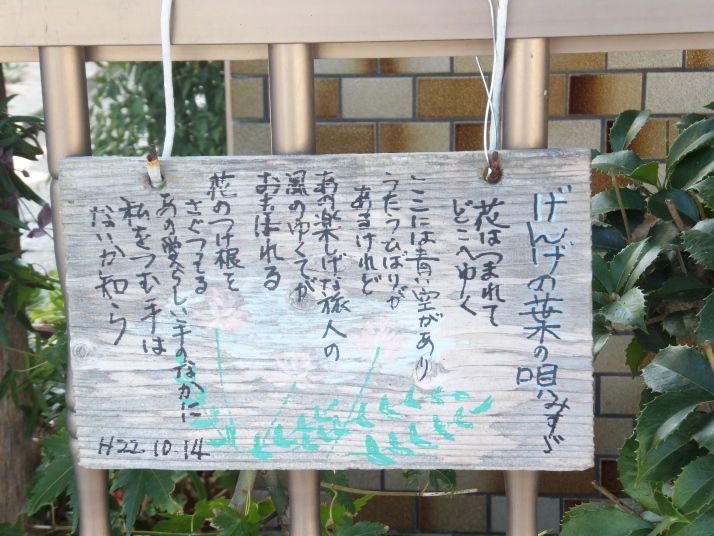 げんげの葉の唄 みすゞ
花はつまれて
どこへゆく
ここには青い空があり
うたうひばりが
あるけれど
あの楽しげな旅人の
風のゆくてが
おもわれる
花のつけ根を
さぐってる
あの愛らしい手のなかに
私をつむ手は
ないか知ら
H22.10.14